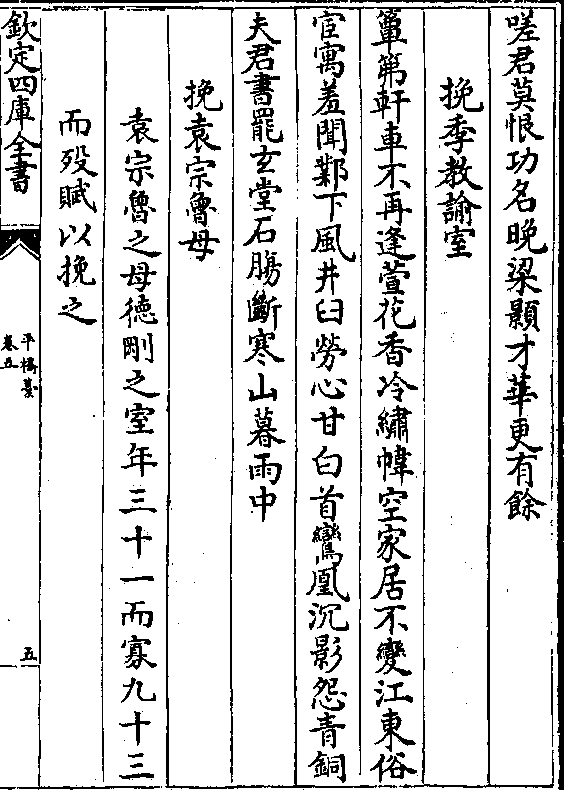 嗟君莫恨功名晚梁顥才華更有餘
挽季教諭室
簞笰軒車不再逢萱花香冷繡幃空家居不變江東俗
宦寓羞聞鄴下風井臼勞心甘白首鸞凰沉影怨青銅
夫君書罷玄堂石腸斷寒山暮雨中
挽袁宗魯母
袁宗魯之母德剛之室年三十一而寡九十三
而歿賦以挽之
欽定四庫全書
平橋藁
卷五
五